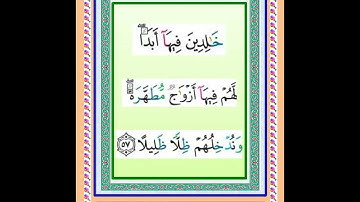 خَٰلِدِينَ فِيهَآ أَبَدًاۖ
لَّهُمْ فِيهَآ أَزْوَٰجٌ مُّطَهَّرَةٌۖ
وَنُدْخِلُهُمْ ظِلًّا ظَلِيلًا ۝٥٧